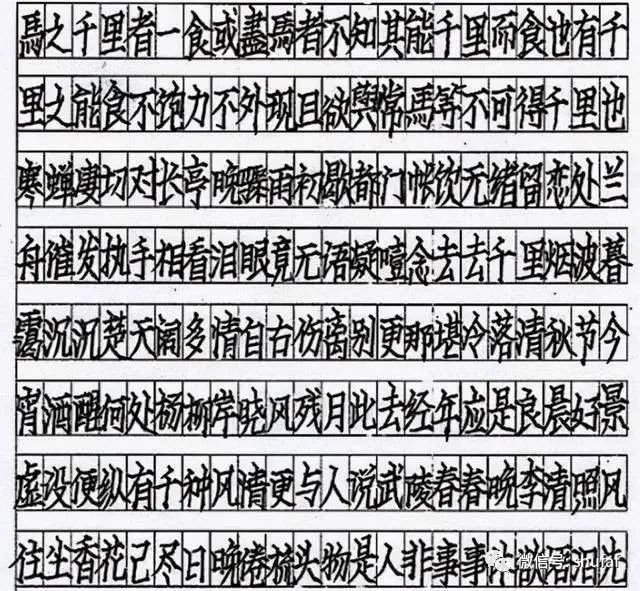 馬之千里者一食或盡馬者不知其能千里而食也有千
里之能食不饱力不外现且欲與常馬等不可得千里也
寒蝉凄切对长亭晚骤雨初歇都门帐饮无绪留恋处兰
舟催发执手相看泪眼竟无语凝噎念去去千里烟波暮
霭沉沉楚天阔多情自古伤离别更那堪冷落清秋节今
宵酒醒何处杨柳岸晓风残月此去经年应是良晨好景
虚设便纵有千种风情更与人说武陵春春晚李清照风
住尘香花已尽日晚倦梳头物是人非事事休欲语泪先
微信号: shufaf